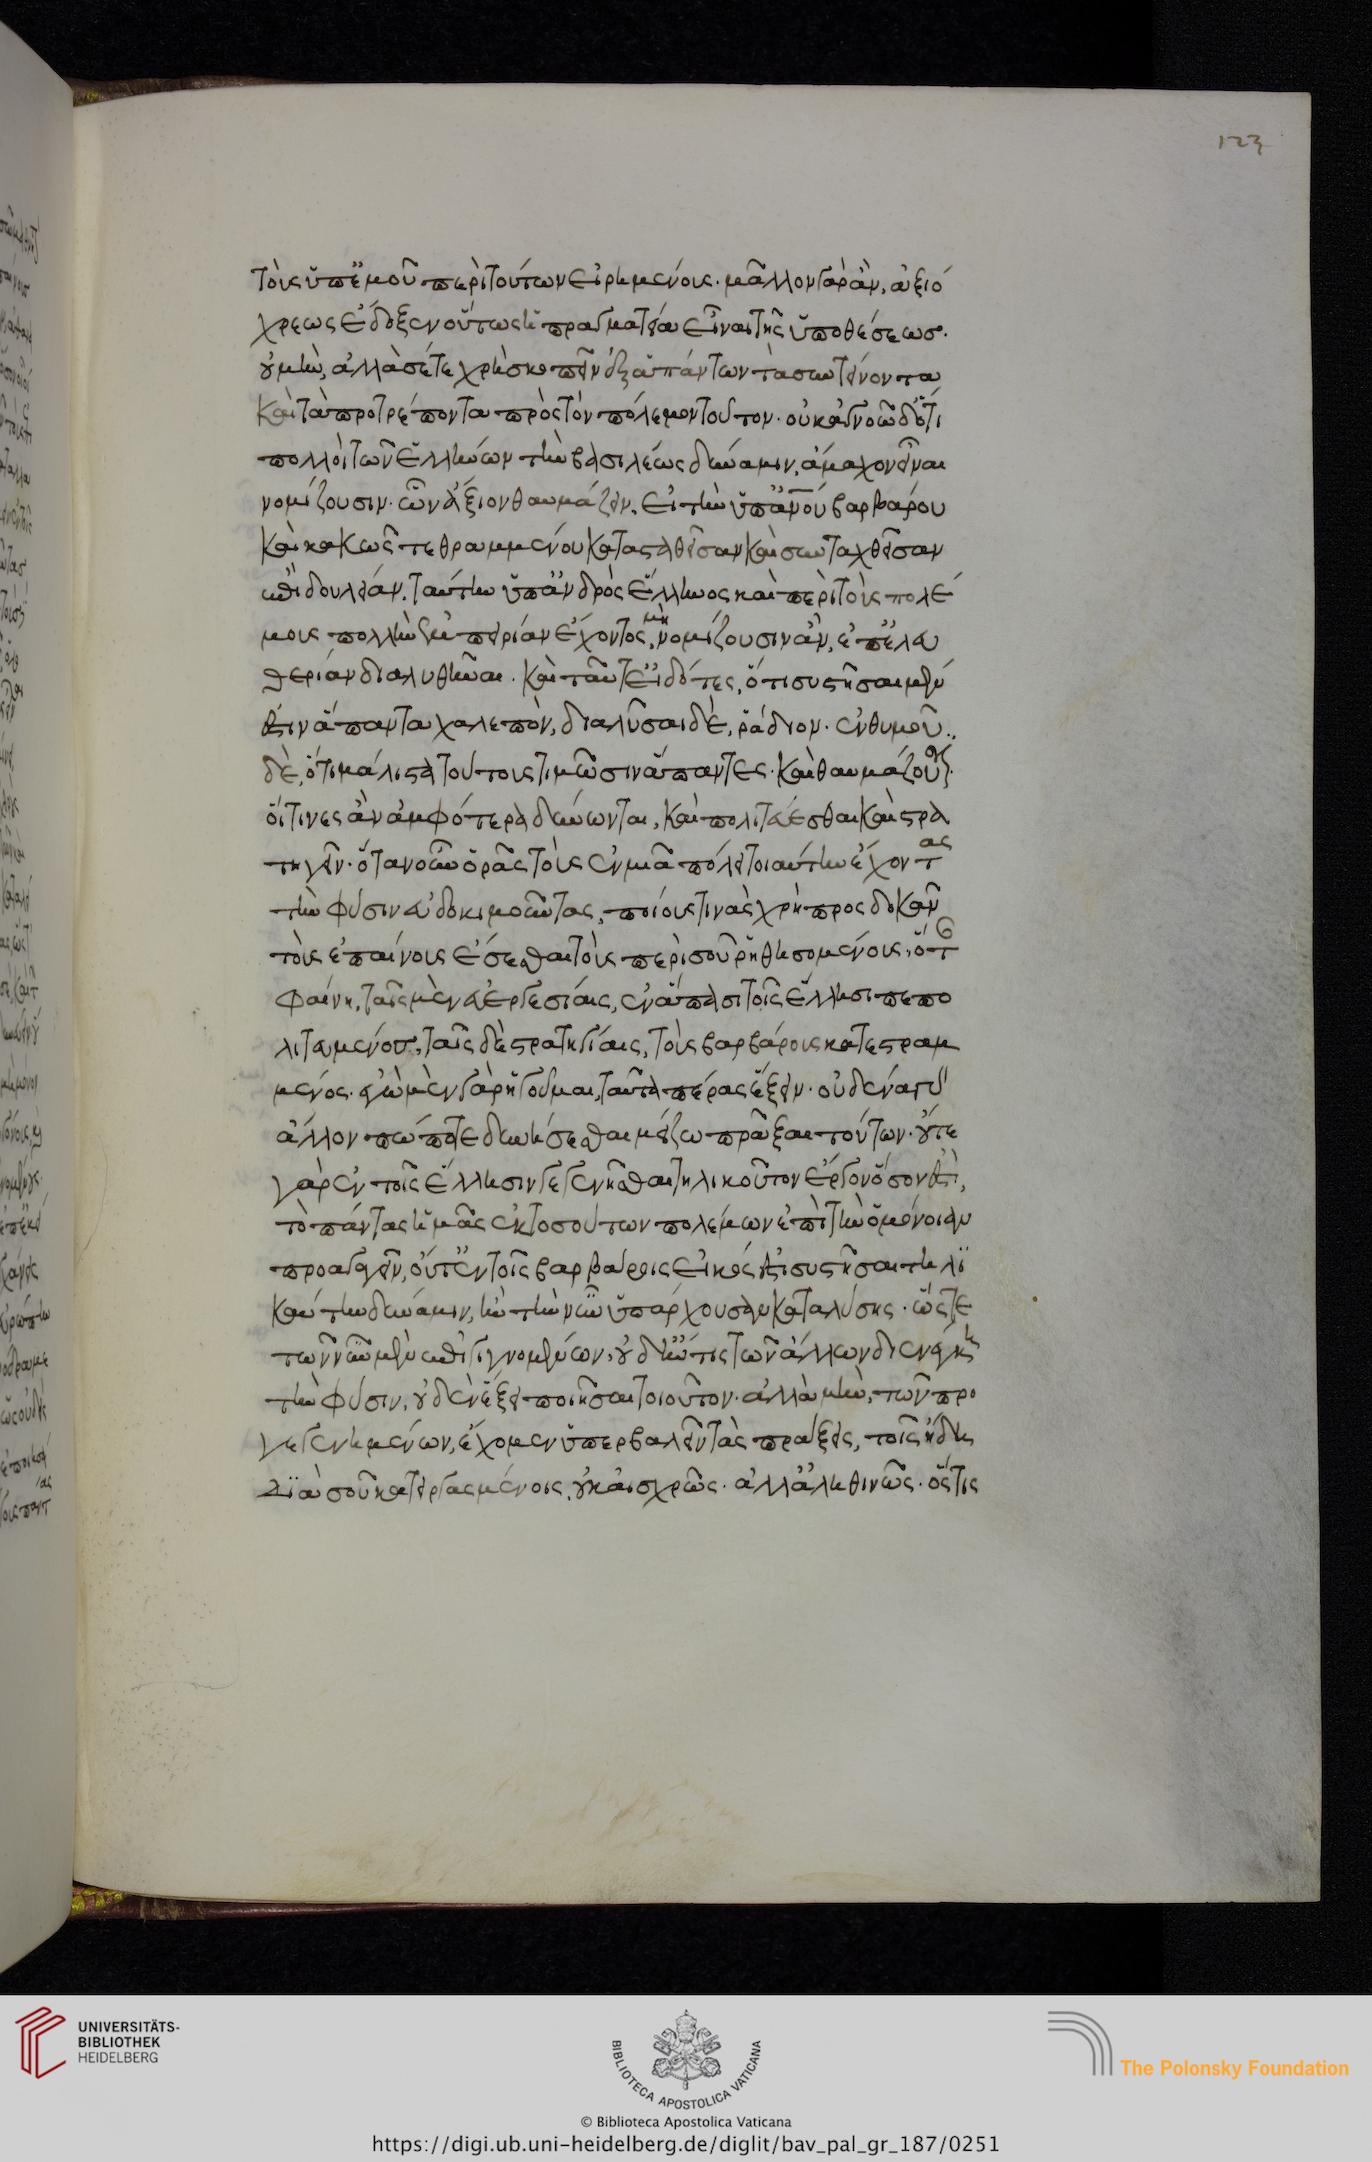 τοῖς ὑπ' ἐμοῦ περὶ τούτων εἰρημένοις· μᾶλλον γὰρ ἂν, ἀξιό
χρεως ἔδοξεν οὕτως ἡ πραγματεία εἶναι τῆς ὑποθέσεως·
οὐ μὴν, ἀλλὰ σέ γε χρὴ σκοπεῖν ἐξ ἁπάντων τὰ συντείνοντα
καὶ τὰ προτρέποντα πρὸς τὸν πόλεμον τοῦτον· οὐκ ἀγνοῶ δ' ὅτι
πολλοὶ τῶν ἑλλήνων τὴν βασιλέως δύναμιν, ἄμαχον εἶναι
νομίζουσιν· ὧν ἄξιον θαυμάζειν, εἰ τὴν ὑπ' ἀνου βαρβάρου
καὶ κακῶς τεθραμμένου κατασταθεῖσαν καὶ συνταχθεῖσαν
ἐπὶ δουλείαν, ταύτην ὑπ' ἀνδρὸς ἕλληνος καὶ περὶ τοὺς πολέ
μους πολλὴν ἐμπειρίαν ἔχοντος, μὴ νομίζουσιν ἂν, ἐπ' ἐλευ
θερίαν διαλυθῆναι· καὶ ταῦτ' εἰδότες, ὅτι συστῆσαι μέν
ἐστιν ἅπαντα χαλεπὸν, διαλῦσαι δὲ, ῥάδιον· ἐνθυμοῦ
δὲ, ὅτι μάλιστα τούτους τιμῶσιν ἅπαντες· καὶ θαυμάζουσιν·
οἵτινες ἂν ἀμφότερα δύνωνται, καὶ πολιτεύεσθαι καὶ στρα
τηγεῖν· ὅταν οὖν ὁρᾶς τοὺς ἐν μιᾶ πόλει τοιαύτην ἔχοντας
τὴν φύσιν εὐδοκιμοῦντας, ποίους τινὰς χρὴ προσδοκᾶν
τοὺς ἐπαίνους ἔσεσθαι τοὺς περὶ σοῦ ῥηθησομένους, ὅταν
φαίνη, ταῖς μὲν εὐεργεσίαις, ἐν ἅπασι τοῖς ἕλλησι πεπο
λιτευμένος, ταῖς δὲ στρατηγίαις, τοὺς βαρβάρους κατεστραμ
μένος· ἐγὼ μὲν γὰρ ἡγοῦμαι, ταῦτα πέρας ἕξειν· οὐδένα γὰρ
ἄλλον πώποτε δυνήσεσθαι μείζω πρᾶξαι τούτων· οὔτε
γὰρ ἐν τοῖς ἕλλησιν γεγενῆσθαι τηλικοῦτον ἔργον ὅσον ἐστὶ,
τὸ πάντας ἡμᾶς ἐκ τοσούτων πολέμων ἐπὶ τὴν ὁμόνοιαν
προαγαγεῖν, οὔτ' ἐν τοῖς βαρβάροις εἰκός ἐστι συστῆσαι τηλι
καύτην δύναμιν, ἢν τὴν νῦν ὑπάρχουσαν καταλύσης· ὥστε
τῶν νῦν μὲν ἐπιγιγνομένων, οὐδ' ἤν τις τῶν ἄλλων διενέγκη
τὴν φύσιν, οὐδὲν ἕξει ποιῆσαι τοιοῦτον· ἀλλὰ μὴν, τῶν προ
γεγενημένων, ἔχομεν ὑπερβαλεῖν τὰς πράξεις, τοῖς ἤδη
διὰ σοῦ κατειργασμένοις, οὐκ αἰσχρῶς· ἀλλ' ἀληθινῶς· ὅστις
123
UNIVERSITÄTS-
BIBLIOTHEK
HEIDELBERG
BIBLIOTECA APOSTOLICA VATICANA
The Polonsky Foundation
© Biblioteca Apostolica Vaticana
https://digi.ub.uni-heidelberg.de/diglit/bav_pal_gr_187/0251